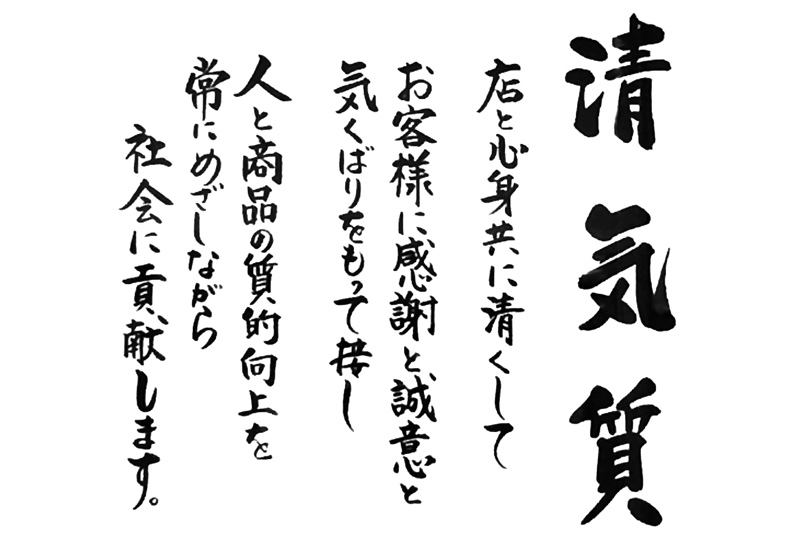 清気質
店と心身共に清くして
お客様に感謝と誠意と
気くばりをもって接し
人と商品の質的向上を
常にめざしながら
社会に貢献します。